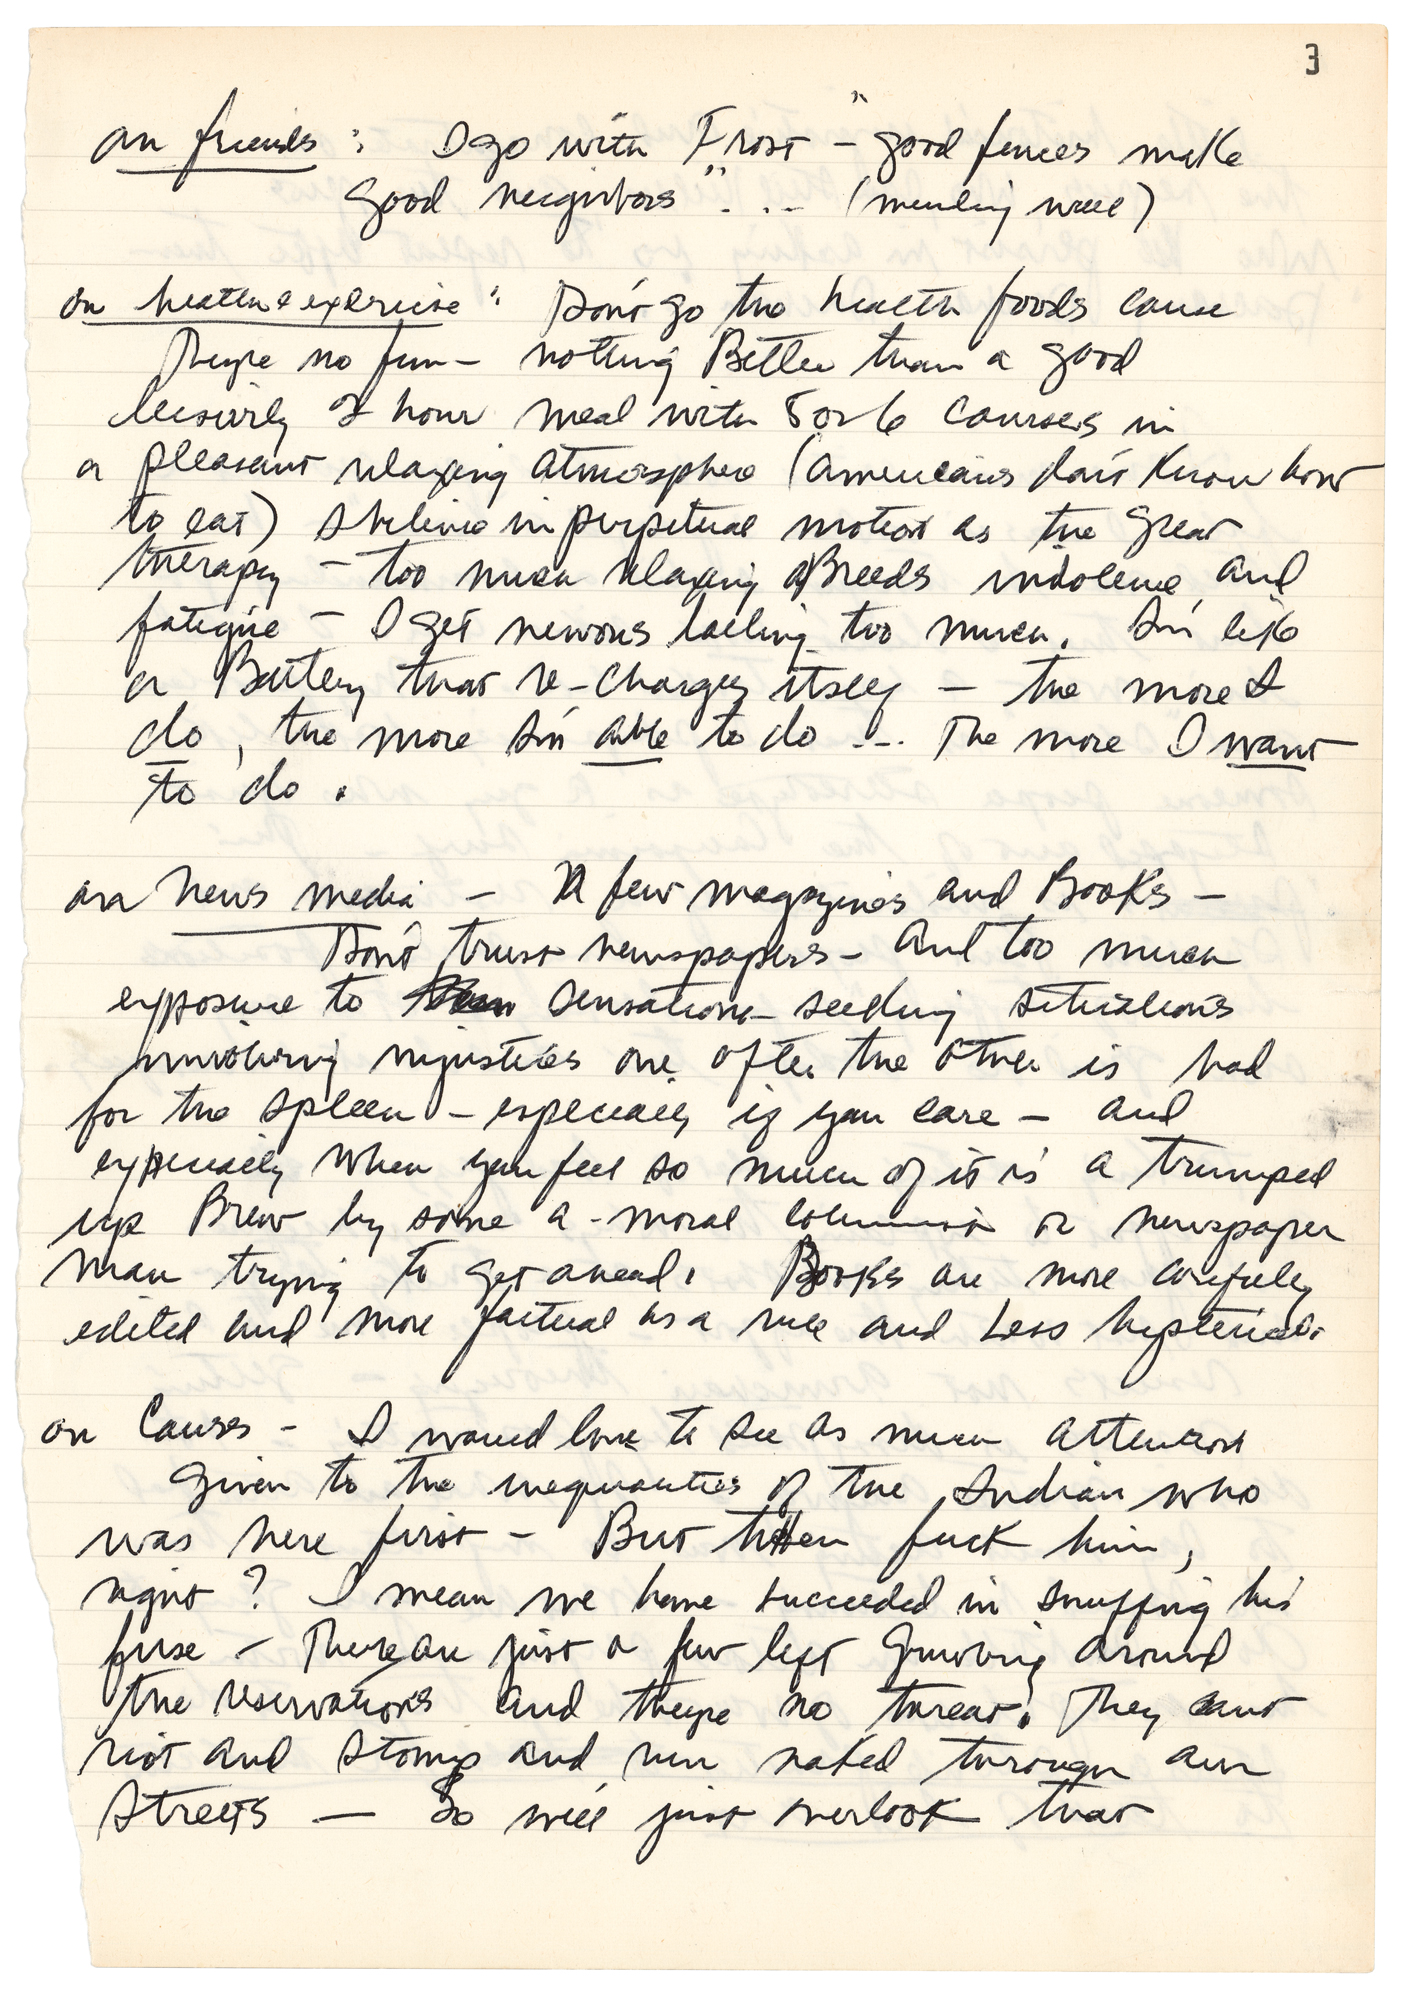 3
on friends : I go with Frost - "good fences make
good neighbors" ... (mending wall)
on health & exercise : Don't go the health foods cause
They're no fun - nothing Better than a good
leisurely 2 hour meal with 5 or 6 courses in
a pleasant relaxing atmosphere (americans don't know how
to eat) I believe in perpetual motion as the great
therapy - too much relaxing Breeds indolence and
fatigue - I get nervous lolling too much. I'm like
a Battery that re-charges itself - the more I
do, the more I'm able to do ... The more I want
to do.
on news media - A few magazines and Books -
Don't trust newspapers - And too much
exposure to sensation-seeking situations
involving injustices one after the other is bad
for the spleen - especially if you care - and
especially when you feel so much of it is a trumped
up Brew by some a-moral columnist or newspaper
man trying to get ahead. Books are more carefully
edited and more factual as a rule and Less hysterical.
on Causes - I would love to see as much attention
given to the inequalities of the Indian who
was here first - But then fuck him,
right? I mean we have succeeded in snuffing his
fuse - There are just a few left grubbing around
the reservations and they're no threat. They can't
riot and stomp and run naked through our
Streets — So we'll just overlook that